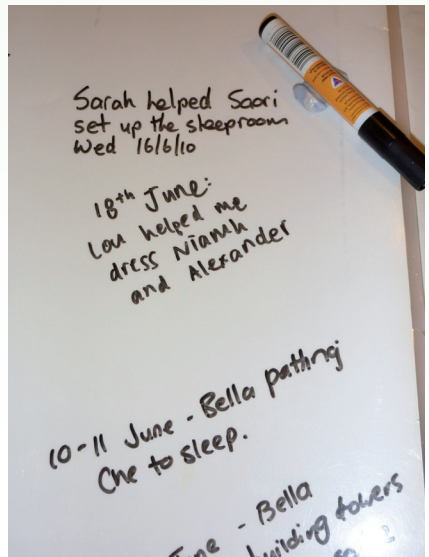 Sarah helped Saori
set up the sleeproom
Wed 16/6/10
18th June:
Lou helped me
dress Niamh
and Alexander
10-11 June - Bella patting
Che to sleep.
June - Bella
building towers